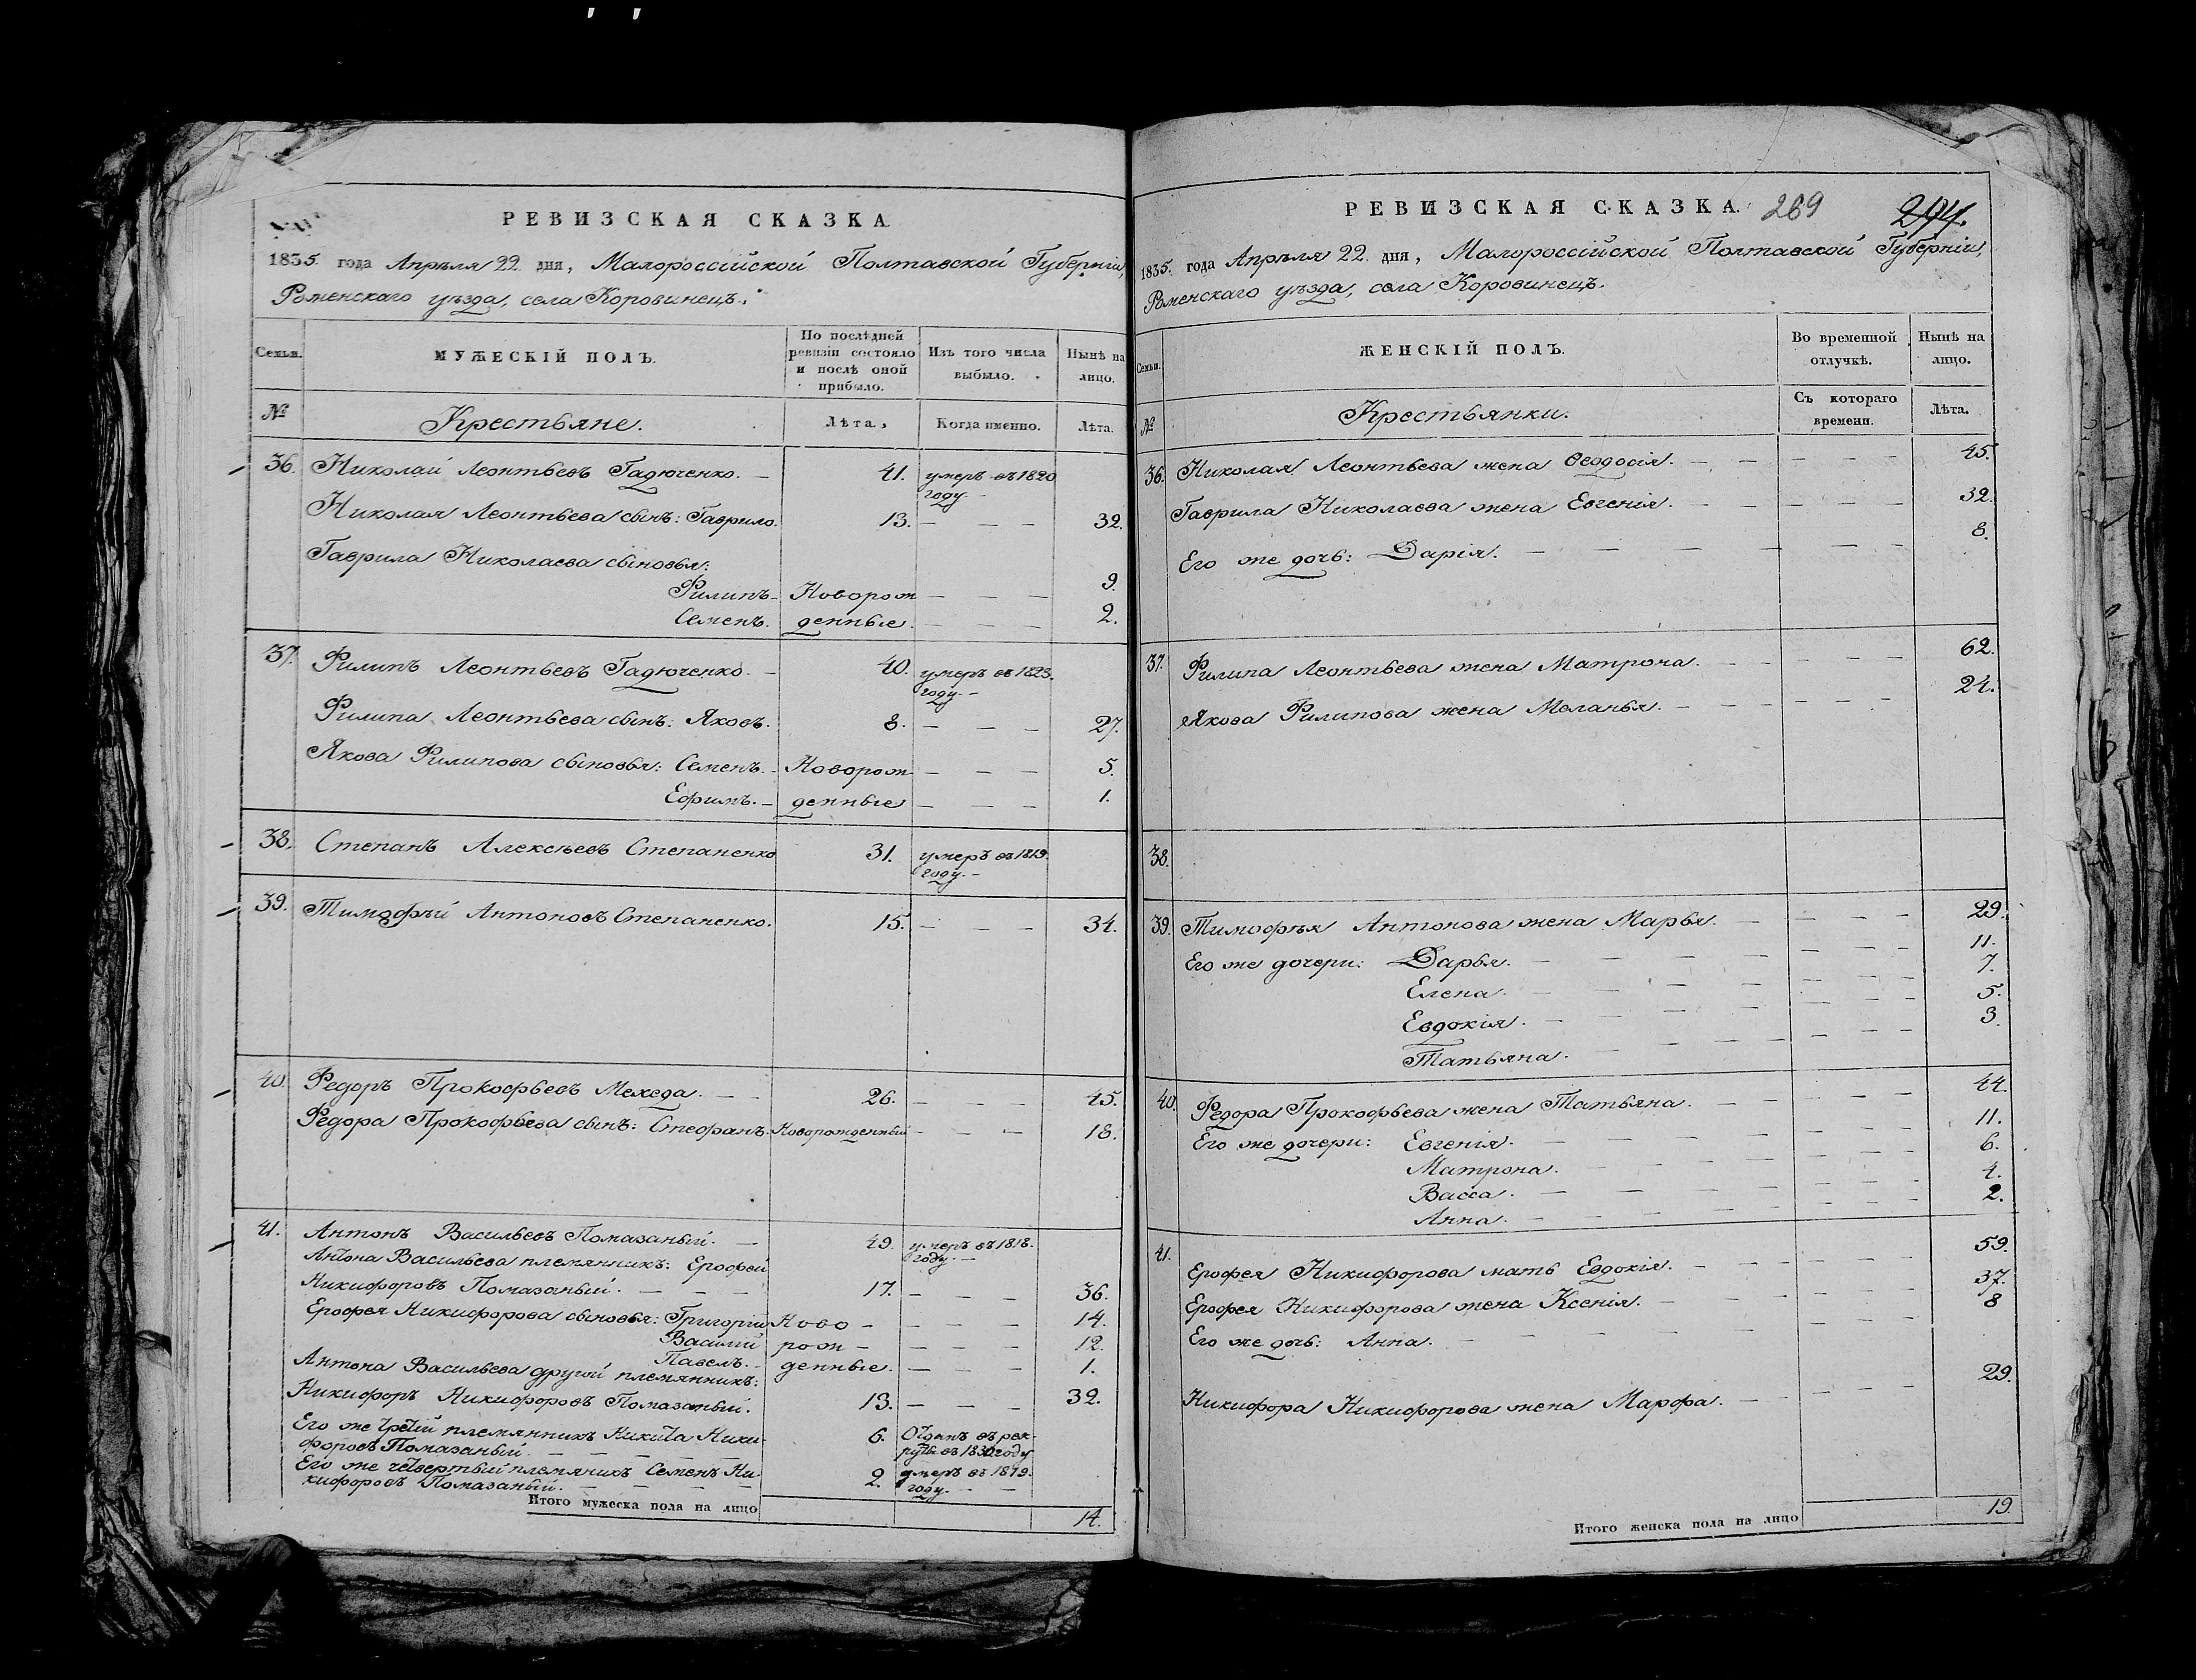 РЕВИЗСКАЯ СКАЗКА.
1835. года Апрѣля 22. дня, Малороссійской Полтавской Губерніи,
Роменскаго уѣзда, села Коровинецъ.
Семьи. МУЖЕСКІЙ ПОЛЪ. По послѣдней ревизіи состояло и послѣ оной прибыло. Изъ того числа выбыло. Нынѣ на лицо.
№ Крестьяне. Лѣта. Когда именно. Лѣта.
36. Николай Леонтьевъ Гадюченко. — 41. умеръ въ 1820
году. —
Николая Леонтьева сынъ: Гаврило. 13. — — — 32.
Гаврила Николаева сыновья:
Филипъ — Новорож — — — 9.
Семенъ. денные. — — — 2.
37. Филипъ Леонтьевъ Гадюченко. — 40. умеръ въ 1823.
году. —
Филипа Леонтьева сынъ: Яковъ. 8. — — — 27.
Якова Филипова сыновья: Семенъ. — Новорож — — — 5.
Ефимъ. — денные — — — 1.
38. Степанъ Алексѣевъ Степаненко 31. умеръ въ 1819.
году. —
39. Тимофѣй Антоновъ Степаненко. 15. — — — 34.
40. Федоръ Прокофьевъ Мехеда. — — 26. — — — 45.
Федора Прокофьева сынъ: Стефанъ. Новорожденный — — — 18.
41. Антонъ Васильевъ Помазаный. — 49. умеръ въ 1818.
году. —
Антона Васильева племянникъ: Ерофей
Никифоровъ Помазаный. — — — 17. — — — 36.
Ерофея Никифорова сыновья: Григорій Ново — — — — 14.
Василій рож — — — — 12.
Павелъ. — денные. — — — 1.
Антона Васильева другой племянникъ:
Никифоръ Никифоровъ Помазаный. 13. — — — 32.
Его же третій племянникъ Никита Ники- 6. Отданъ въ рек-
форовъ Помазаный. — — — — руты въ 1830 году
Его же четвертый племяникъ Семенъ Ни- 2. умеръ въ 1819.
кифоровъ Помазаный. — — — — году. — —
Итого мужеска пола на лицо 14.
РЕВИЗСКАЯ СКАЗКА. 269 294.
1835. года Апрѣля 22. дня, Малороссійской Полтавской Губерніи,
Роменскаго уѣзда, села Коровинецъ.
Семьи. ЖЕНСКІЙ ПОЛЪ. Во временной отлучкѣ. Нынѣ на лицо.
№ Крестьянки. Съ котораго времени. Лѣта.
36. Николая Леонтьева жена Ѳеодосія. — — — — — 45.
Гаврила Николаева жена Евгенія. — — — — — 32.
Его же дочь: Дарія. — — — — — — 8.
37. Филипа Леонтьева жена Матрона. — — — — — 62.
Якова Филипова жена Меланья. — — — — — — 24.
38.
39. Тимофѣя Антонова жена Марья. — — — — 29.
Его же дочери: Дарья. — — — — — — — 11.
Елена. — — — — — — — 7.
Евдокія. — — — — — — — 5.
Татьяна. — — — — — — — 3.
40. Федора Прокофьева жена Татьяна. — — — — — 44.
Его же дочери: Евгенія. — — — — — — — 11.
Матрона. — — — — — — — 6.
Васса. — — — — — — — 4.
Анна. — — — — — — — 2.
41. Ерофея Никифорова мать Евдокія. — — — — — 59.
Ерофея Никифорова жена Ксенія. — — — — — 37.
Его же дочь: Анна. — — — — — — — 8
Никифора Никифорова жена Марфа. — — — — 29.
Итого женска пола на лицо 19.